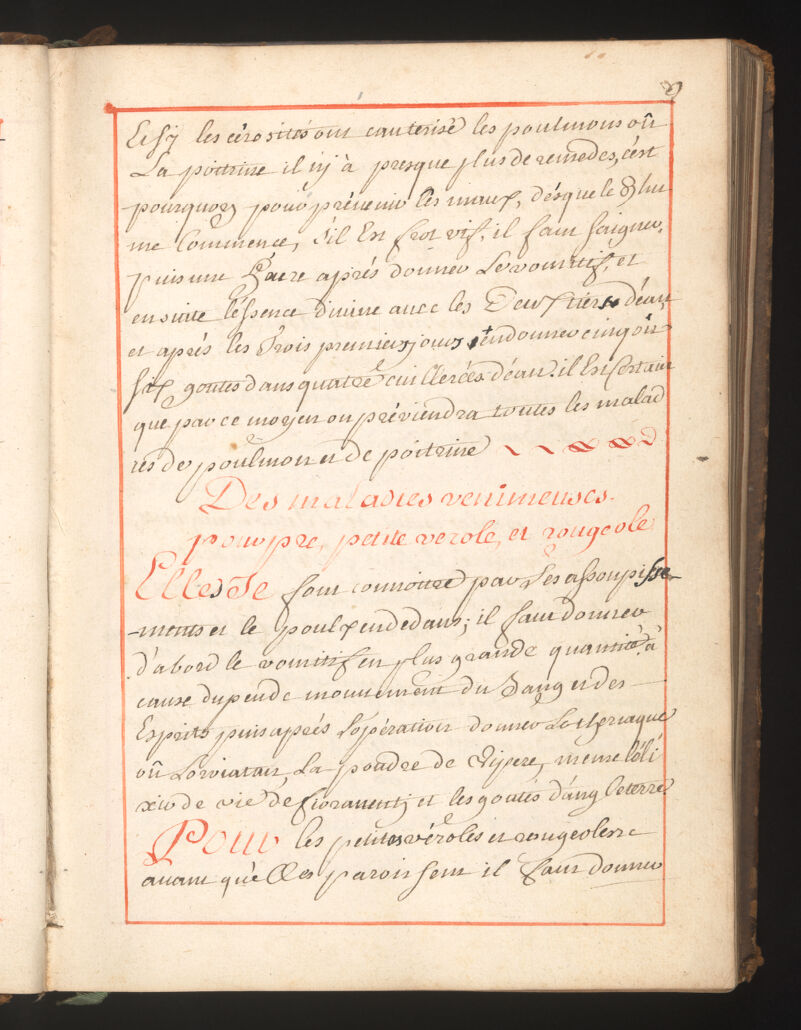 Et sy les cérosités ont cauterisé les poulmons oû
La poitrine il n'y à presque plus de remedes, c'est
pourquoy pour prévenir les maux, dés que le Rhu
me Commence, s'il Est frot vif, il faut saigner,
puis une heure aprés donner Le vomitif, et
ensuite l'éssence divine avec les Deux tiers d'éau,
et aprés les Trois premiers jours en donner cinq oû
six goutes dans quatre cuillerées d'éau. il Est Certain
que par ce moyen on préviendra toutes les malad
ies de poulmon et de poitrine
Des maladies venimeuses.
pourpre, petite verole, et rougeole
Elles Se font connoitre par Les assoupisse-
-ments et le poulx en dedans; il faut donner
d'abord le vomitif en plus grande quantité à
cause du peu de mouvement du Sang et des
Esprits puis aprés L'opération donner Le theriaque
oû L'orviatan, La poudre de Vipere, meme l'éli
xir de vie de fioraventi; et les goutes d'angleterre
Pour les petites véroles et rougeoles
avant qu'elles paroissent il faut donner